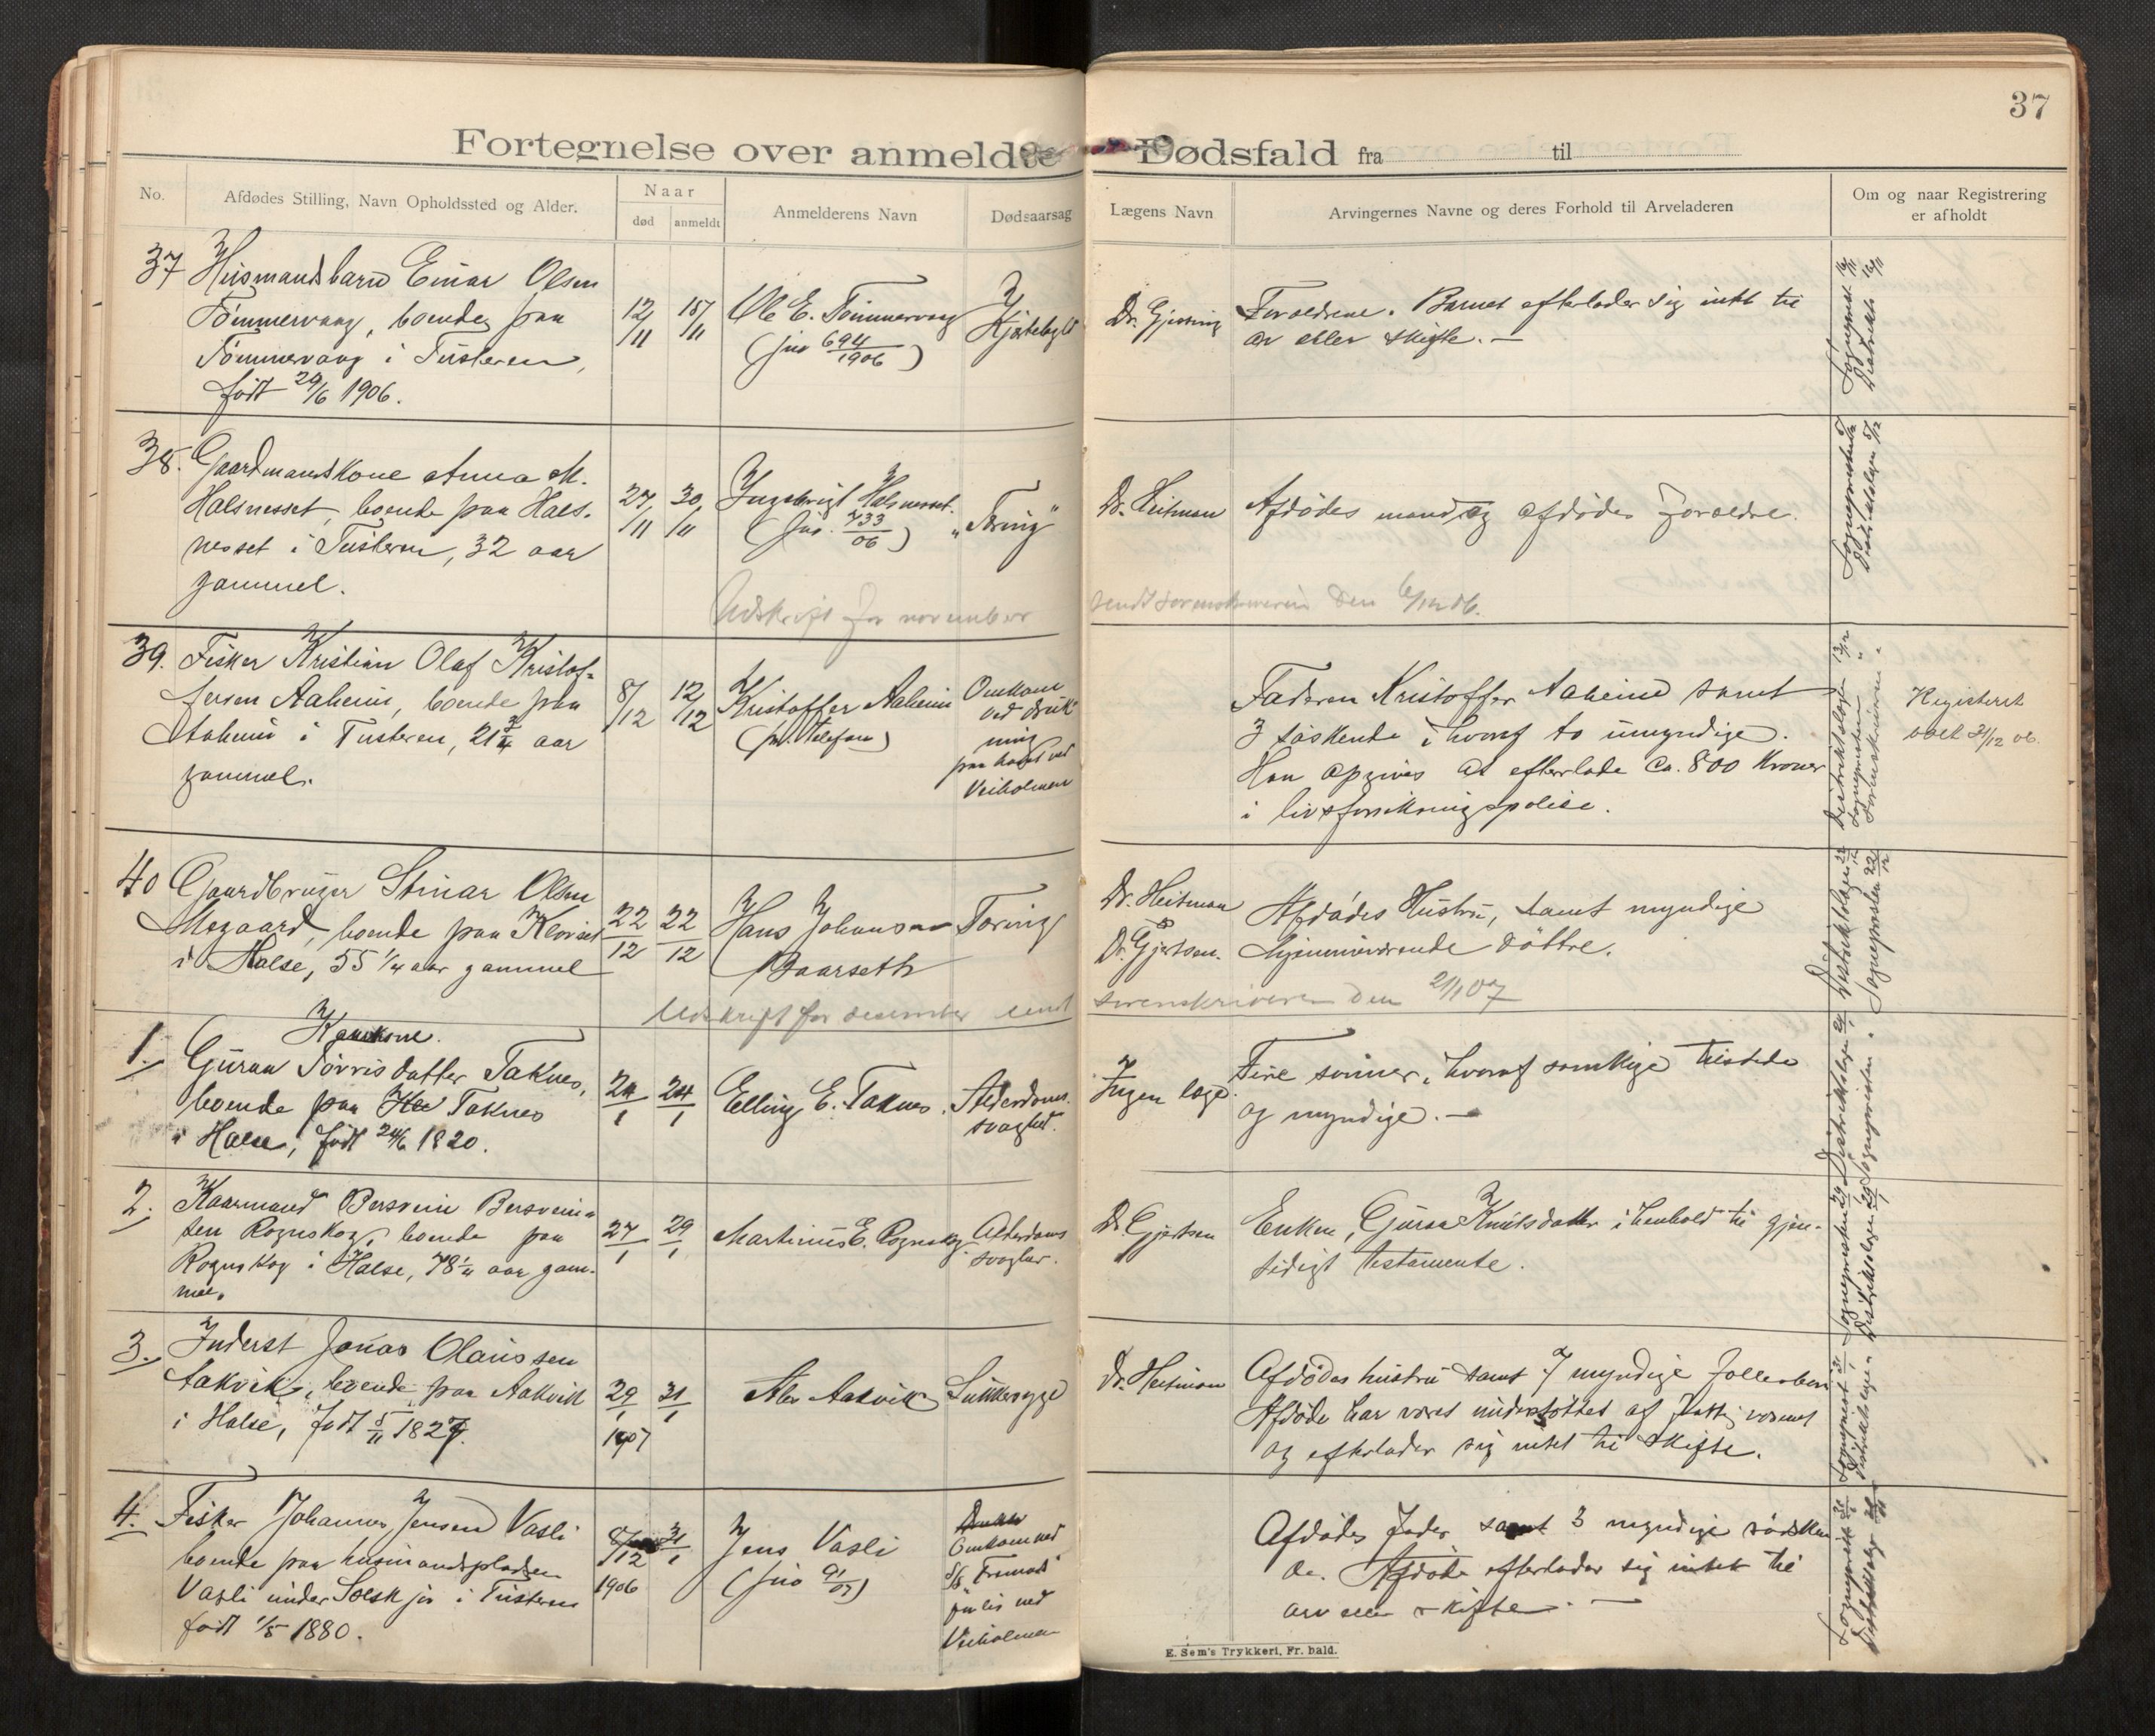 37
Fortegnelse over anmeldte Dødsfald fra til
No.
Afdødes Stilling, Navn Opholdssted og Alder.
Naar
død
anmeldt
Anmelderens Navn
Dødsaarsag
Lægens Navn
Arvingernes Navne og deres Forhold til Arveladeren
Om og naar Registrering
er afholdt
37 Husmandsbarn Einar Olsen
Tömmervaag, boende paa
Tömmervaag i Tusteren,
född 29/6 1906.
12/11
15/11
Ole E. Tömmervaag
(jno 694/1906)
Dr. Gjessing
Foraeldrene. Barnet efterlader sig intet til
arv eller skifte. —
Sogneprest 16/11
38. Gaardmandskone Anna M.
Halsnesset, boende paa Hals-
nesset i Tusteren, 32 aar
gammel.
27/11
30/11
Ingebrigt Halsnesset.
(jno. 733/06)
"Tæring"
Dr. Heitman
Afdödes mand og afdödes foraeldre.
Udskrift for november
sendt sorenskriveren den 6/12 06.
39. Fisker Kristian Olaf Kristof-
fersen Aaheim, boende paa
Aaheim i Tusteren, 21 3/4 aar
gammel.
8/12
12/12
Kristoffer Aaheim
(pr. telefon)
Omkom
ved druk-
ning
paa havet ved
Veiholmen
Faderen Kristoffer Aaheim samt
3 söskende, hvoraf to umyndige.
Han opgives at efterlade ca. 800 kroner
i livsforsikringspolise.
Distriktslægen 13/12
Sognepresten "
Sorenskriveren "
Registreret
40 Gaardbruger Steinar Olsen
Megaard, boende paa
i Halse, 55 1/4 aar gammel
22/12
22/12
Hans Johansen
Baarseth
Tæring
Dr. Heitman
&
Dr. Gjertsen.
Afdödes Hustru, samt myndige
hjemmeværende döttre.
Distriktslægen 22/12
Sognepresten 22/12
Udskrift for december sendt
sorenskriveren den 2/1 07
1. Kaarkone.
Guraa Sörrisdatter Taknes,
boende paa Taknes
i Halse, född 24/6 1820.
24/1
Elling E. Taknes.
Alderdoms-
svaghed.
Ingen læge.
Fire sönner, hvoraf samtlige tilstede
og myndige. —
2. Kaarmand Bersvein Bersvein-
sen Rognskog, boende paa
Rognskog i Halse, 78 1/4 aar gam-
mel.
27/1
29/1
Martinus E. Rognskog
Alderdoms
svaghed.
Dr. Gjertsen
Enken, Guraa Knutsdatter i henhold til gjen-
sidigt testamente.
Sognepresten 29/1
Distriktslægen 29/1
3. Inderst Jonas Olaussen
Aakvik, boende paa Aakvik
i Halse, född 5/11 1827.
29/1
1907
31/1
Aakvik
Dr. Heitman
Afdödes hustru samt 7 myndige fællesbörn
Afdöde har været understöttet af fattigvæsenet
og efterlader sig intet til skifte.
4. Fisker Johannes Jensen Vasli
boende paa husmandspladsen
Vasli under Soleskjær i Tusteren
född 1/5 1880.
8/12
1906
31/1
Jens Vasli
(jno 91/07)
Omkom ved
forlis ved
Veiholmen
Afdödes fader samt 3 myndige södsken-
de. Afdöde efterlader sig intet til
arv eller skifte. —
E. Sem's Trykkeri, Fr. hald.